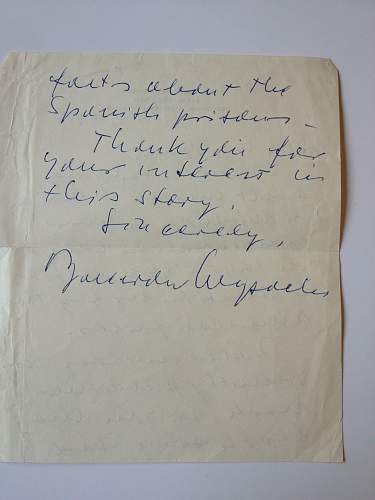 facts about the
Spanish prisons –
Thank you for
your interest in
this story.
Sincerely,